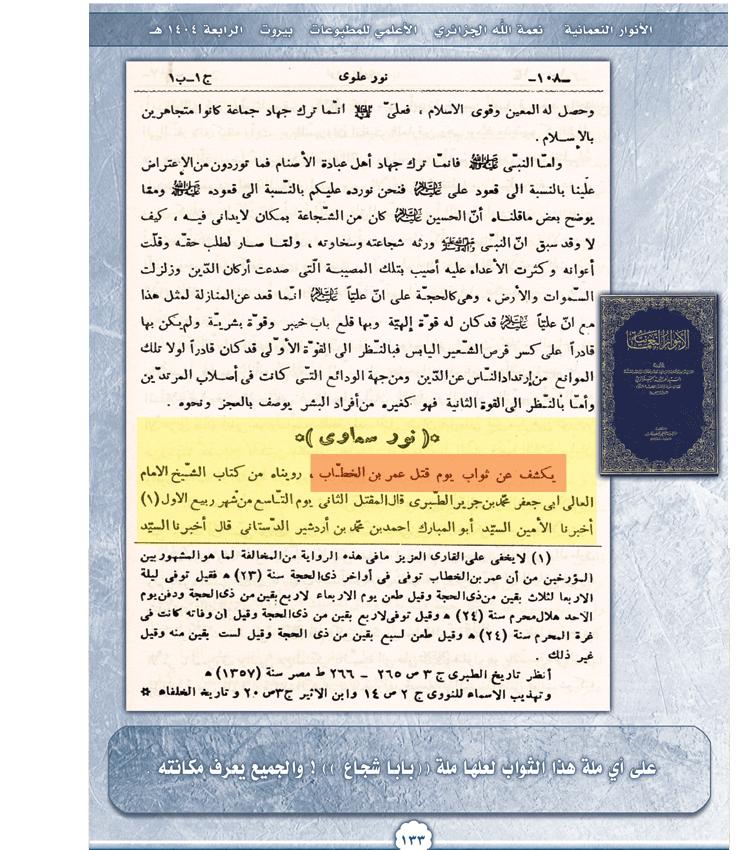 الأنوار النعمانية نعمة الله الجزائري الأعلمي للمطبوعات بيروت الرابعة ١٤٠٤ هـ
ـ١٠٨ـ نور علوى ج١ـب١
وحصل له المعين وقوى الاسلام ، فعلىّ انـّما ترك جهاد جماعة كانوا متجاهرين
بالإسـلام .
وامـّا النبىّ فانمـّا ترك جهاد أهل عبادة الأصنام فما توردون من الإعتراض
علينا بالنسبة الى قعود على فنحن نورده عليكم بالنـّسبة الى قعوده وممّا
يوضح بعض ماقلنـاه أنّ الحسين كان من الشـّجاعة بمكان لايدانى فيـه ، كيف
لا وقد سبق انّ النبىّ ورثه شجاعته وسخاوته ، ولمّـا صـار لطلب حقـّه وقلّت
أعوانه وكثرت الأعداء عليه أصيب بتلك المصيبـة الّتى صدعت أركان الدّين وزلزلت
السّموات والأرض ، وهى كالحجـّة على انّ عليّاً انـّما قعد عن المنازلة لمثل هذا
مع انّ عليـّاً قدكان له قوّة إلهيّة وبها قلع باب خيبر وقوّة بشريـّة ولم يكن بها
قادراً على كسر قرص الشـّعير اليابس فبالنـّظر الى القوّة الأو ّلى قدكان قادراً لولا تلك
الموانع من إرتداد النـّاس عن الدّين ومن جهة الودائع التـّى كانت فى أصلاب المرتدّين
وأمـّا بالنـّظر الى القوة الثانية فهو كغيره من أفراد البشر يوصف بالعجز ونحوه .
✡( نور سماوى )✡
يكشف عن ثواب يوم قتل عمر بن الخطـّاب ، رويناه من كتاب الشـّيخ الامام
العالى ابى جعفر محمّد بن جرير الطـّبرى قال المقتل الثانى يوم التّاسع من شهر ربيع الاول (١)
أخبرنا الأمين السيّد أبو المبارك احمد بن محمّد بن أردشير الدّستانى قال أخبرنا السيّد
(١) لا يخفى على القارى العزيز مافى هذه الرواية من المخالفة لما هو المشهور بين
المؤرخين من أن عمر بن الخطاب توفى فى أواخر ذى الحجة سنة (٢٣) ه فقيل توفى ليلة
الاربعا لثلاث بقين من ذى الحجة وقيل طعن يوم الاربعاء لاربع بقين من ذى الحجة ودفن يوم
الاحد هلال محرم سنة (٢٤) ه وقيل توفى لاربع بقين من ذى الحجة وقيل ان وفاته كانت فى
غرة المحرم سنة (٢٤) ه وقيل طعن لسبع بقين من ذى الحجة وقيل لست بقين منه وقيل
غير ذلك .
أنظر تاريخ الطبرى ج ٣ ص ٢٦٥ ـ ٢٦٦ ط مصر سنة (١٣٥٧) ه
وتهذيب الاسماء للنووى ج ٢ ص ١٤ وابن الاثير ج٣ص ٢٠ و تاريخ الخلفاء ✡
الأنوار النعمانية
على أي ملة هذا الثواب لعلها ملة (( بابا شجاع )) ! والجميع يعرف مكانته .
١٣٣